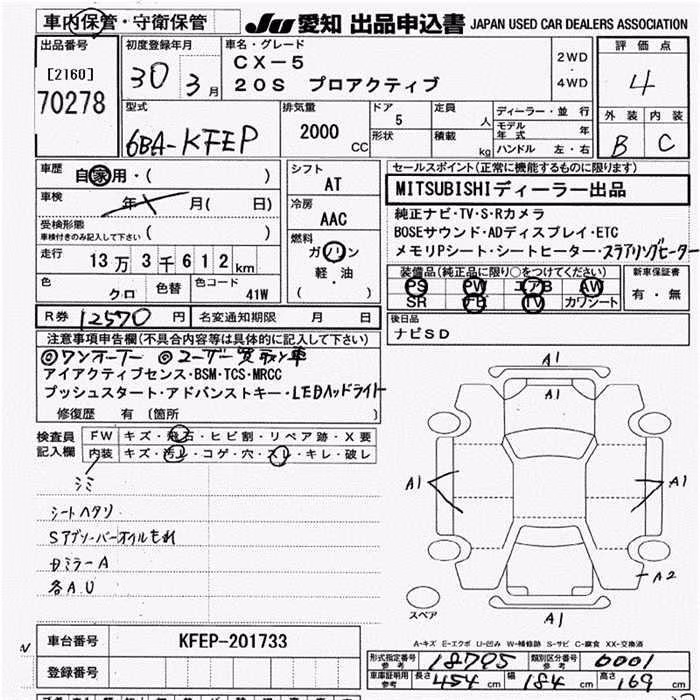 車内保管・守衛保管
JU 愛知 出品申込書 JAPAN USED CAR DEALERS ASSOCIATION
出品番号
[2160]
70278
初度登録年月
30 3月
車名・グレード
CX-5
20S プロアクティブ
2WD
・
4WD
評価点
4
外装 内装
B C
型式
6BA-KFEP
排気量
2000
CC
ドア
5
形状
定員
人
積載
kg
ディーラー・並行
モデル年式 年
ハンドル 左・右
車歴
自家用・( )
車検
年 月( 日)
受検形態
車検付きのみ記入して下さい ( )
走行
13万3千612km
色
クロ
色替
色コード
41W
シフト
AT
冷房
AAC
燃料
ガソリン
軽・油
( )
セールスポイント(正常に機能するものに限ります)
MITSUBISHIディーラー出品
純正ナビ・TV・S・Rカメラ
BOSEサウンド・ADディスプレイ・ETC
メモリPシート・シートヒーター・ステアリングヒーター
装備品(純正品に限り○をつけてください)
PS PW エアB AW
SR TV カワシート
新車保証書
有・無
R券 12570 円
名変通知期限 月 日
後日品
ナビSD
注意事項申告欄(不具合箇所等は具体的に記入して下さい)
◎ワンオーナー ◎ユーザー買取車
アイアクティブセンス・BSM・TCS・MRCC
プッシュスタート・アドバンストキー・LEDヘッドライト
修復歴 有 〔箇所 〕
検査員
記入欄
FW キズ・飛石・ヒビ割・リペア跡・X要
内装 キズ・汚レ・コゲ・穴・スレ・キレ・破レ
シミ
シートヘタリ
Sアブソーバーオイルもれ
ドミラーA
各A.U
A1
A1
A1
A1
A1
A2
A1
スペア
A-キズ E-エクボ U-凹み W-補修跡 S-サビ C-腐食 XX-交換済
車台番号
KFEP-201733
登録番号
形式指定番号
参考
18705
類別区分番号
参考
0001
車庫証明用
参考
長さ 454cm 幅 184cm 高さ 169cm